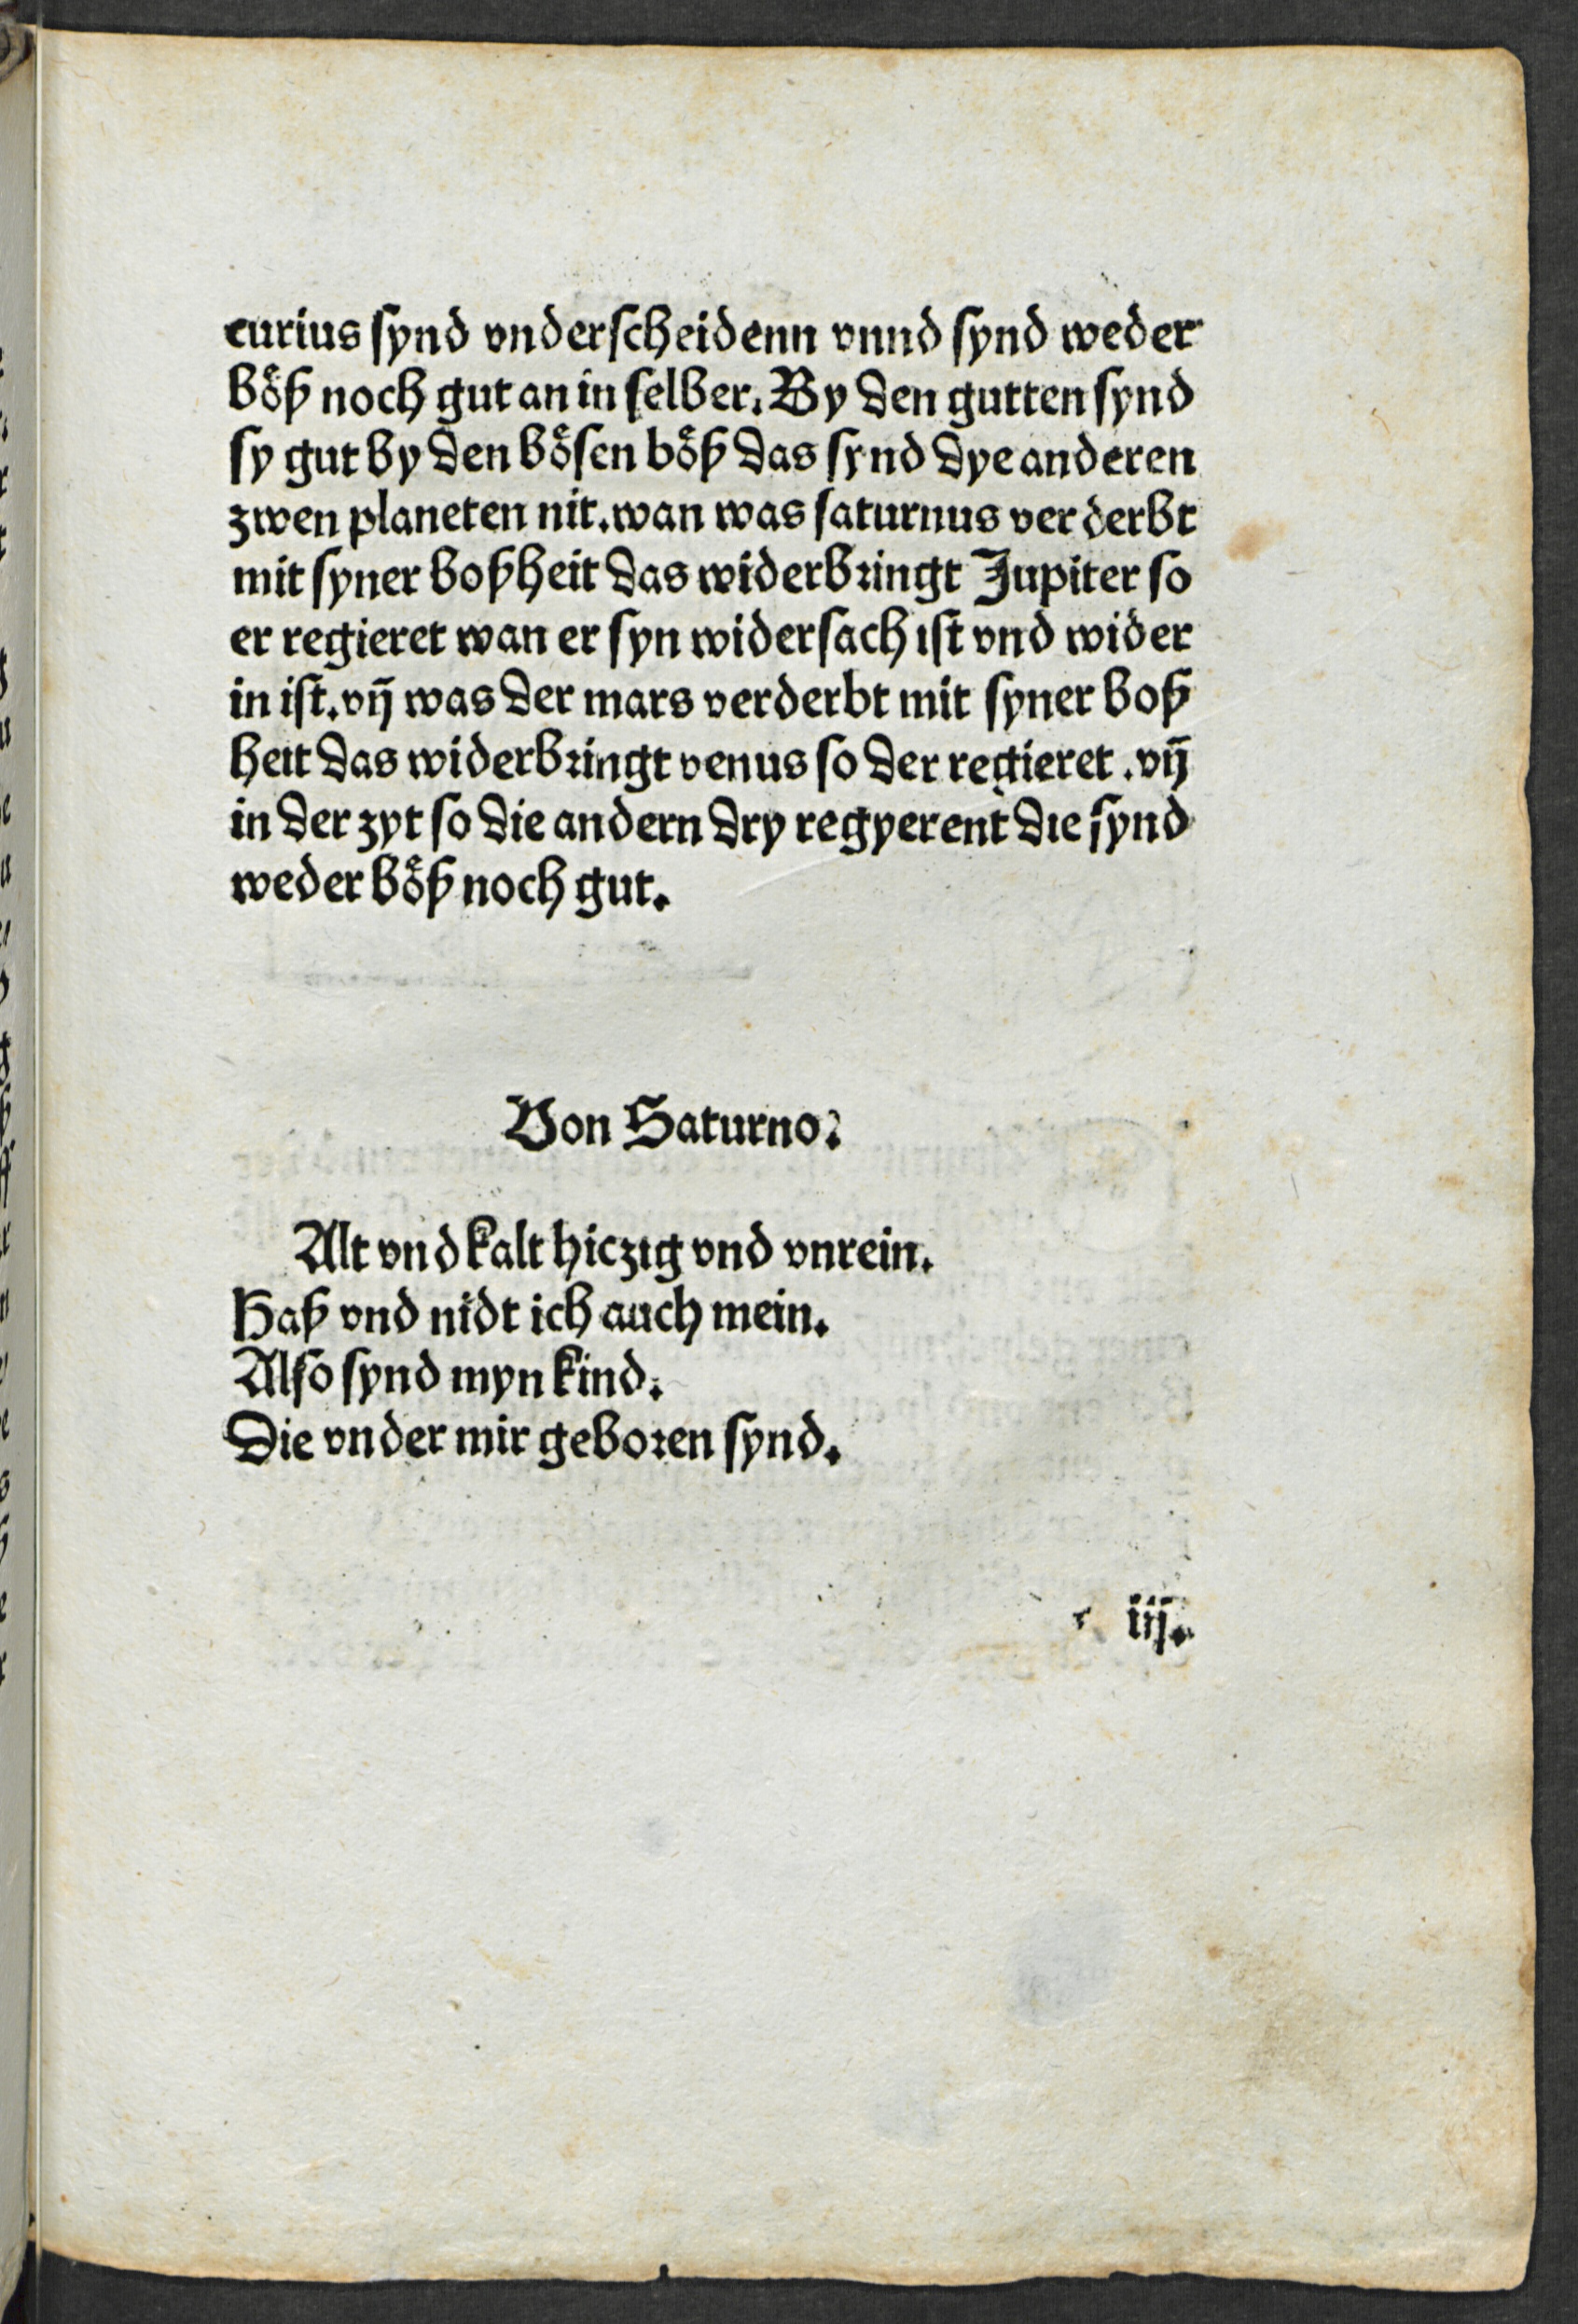 curius synd vnderscheidenn vnnd synd weder
böß noch gut an in selber. By den gutten synd
sy gut by den bösen böß das synd dye anderen
zwen planeten nit. wan was saturnus verderbt
mit syner boßheit das widerbringt Jupiter so
er regieret wan er syn widersach ist vnd wider
in ist. vn̄ was der mars verderbt mit syner boß
heit das widerbringt venus so der regieret. vn̄
in der zyt so die andern dry regyerent die synd
weder böß noch gut.
Von Saturno.
Alt vnd kalt hiczig vnd vnrein.
Haß vnd nidt ich auch mein.
Also synd myn kind.
Die vnder mir geboren synd.
iij.